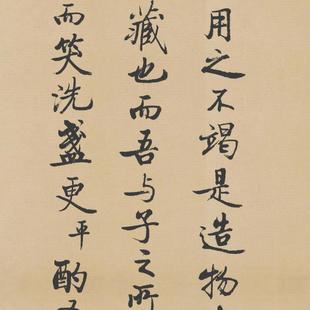 用之不竭是造物
藏也而吾与子之所
而笑洗盏更平酌